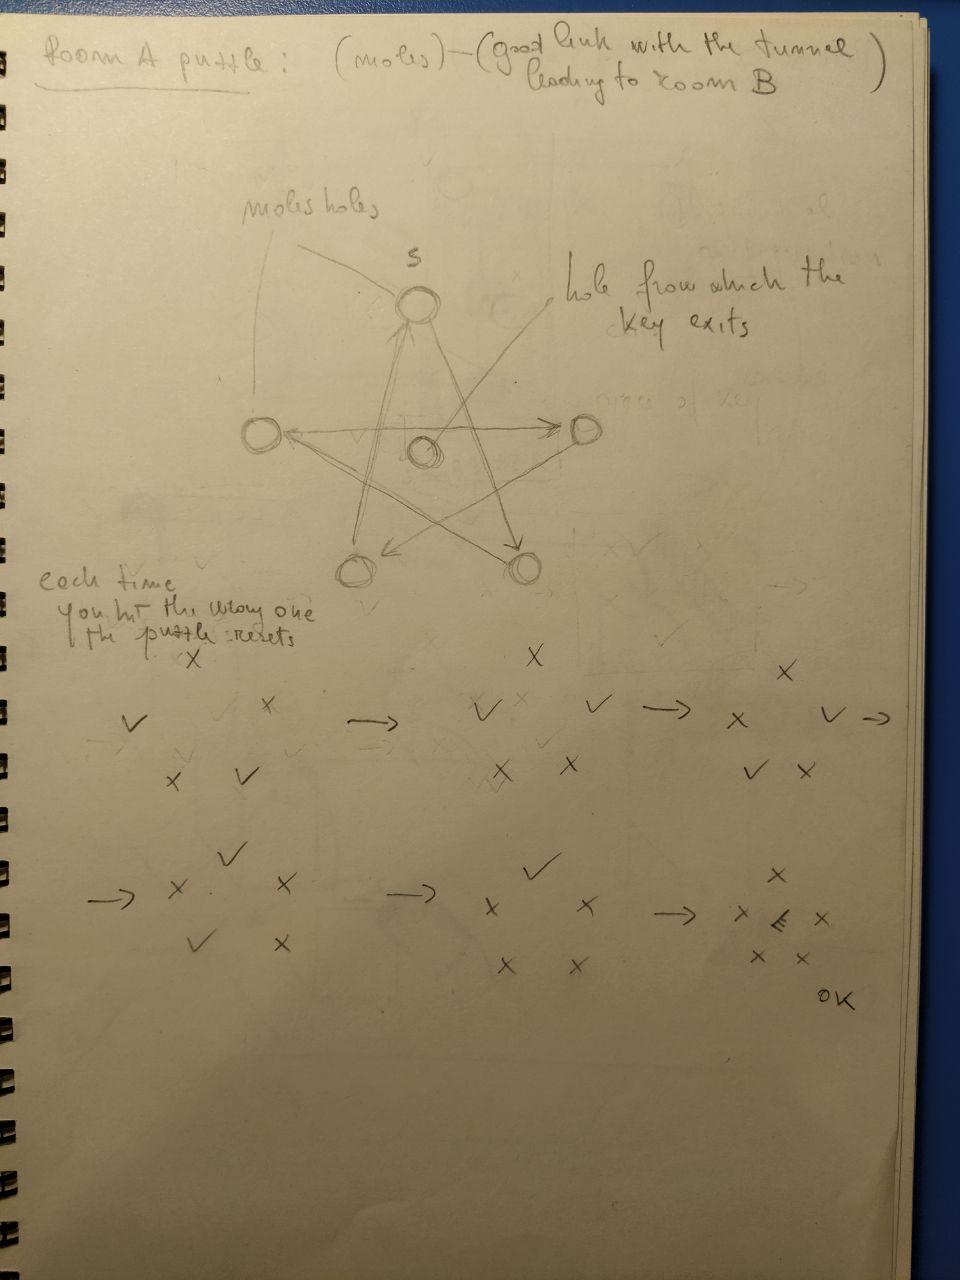 Room A puzzle: (moles) – (good link with the tunnel
leading to room B)
moles holes
S
hole from which the
key exits
each time
you hit the wrong one
the puzzle resets
OK